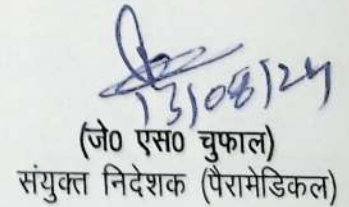 13/08/24
(जे0 एस0 चुफाल)
संयुक्त निदेशक (पैरामेडिकल)